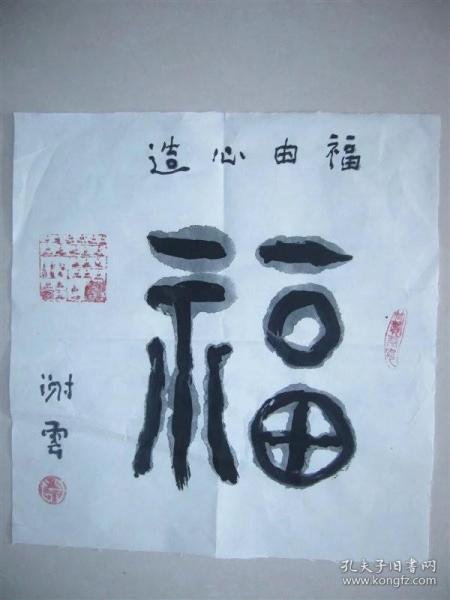 福由心造
福
谢云
孔夫子旧书网
www.kongfz.com